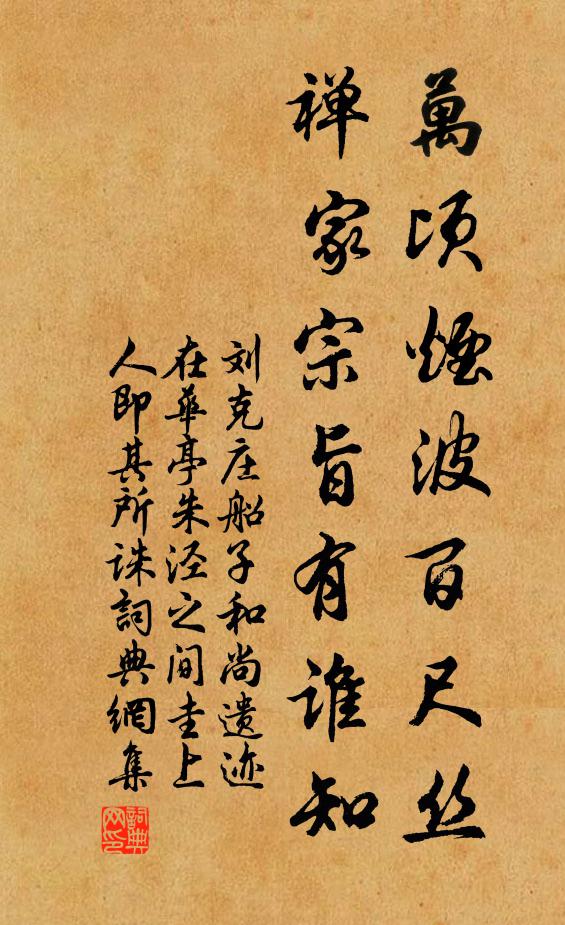 萬頃煙波百尺丝
禅家宗旨有谁知
刘克庄船子和尚遗迹
在華亭朱泾之间圭上
人即其所诛詞典網集
詞典网印